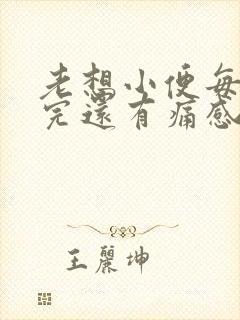 老想小便每
完還有痛感
王麗坤